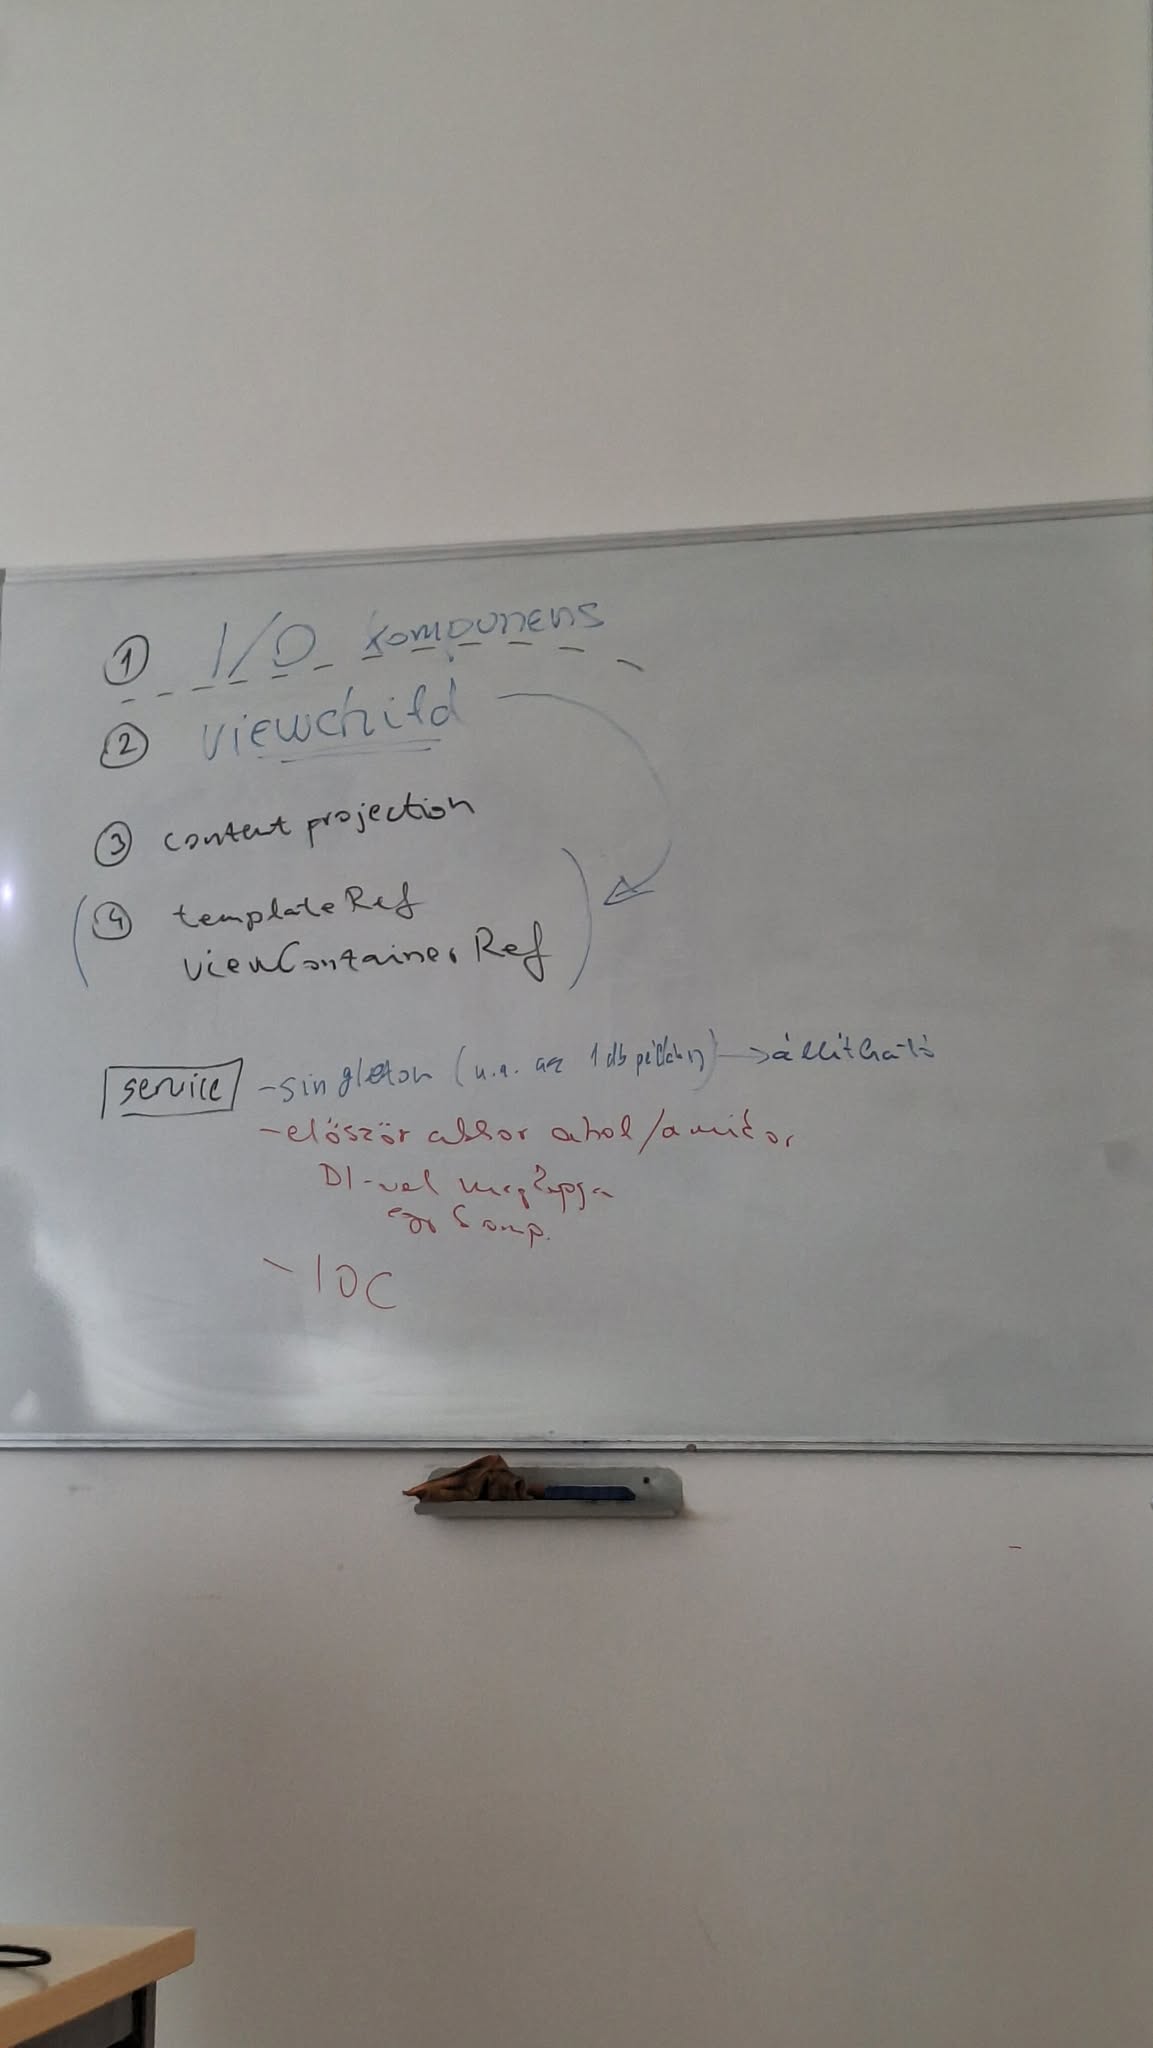 ① I/O komponens
② viewchild
③ content projection
④ templateRef
viewContainerRef
service -singleton (u.a. az 1 db példány) → állítható
-először akkor ahol/amikor
DI-vel megkapja
egy komp.
- IOC